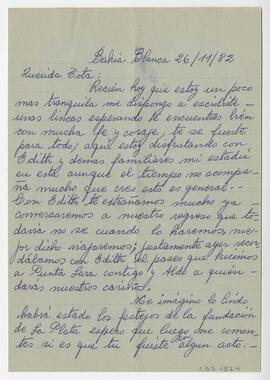 Bahia Blanca 26/11/82
Querida Tota:
Recién hoy que estoy un poco
mas tranquila me dispongo a escribirte
unas lineas esperando te encuentres bién
con mucha fe y coraje, te se fuerte
para todo; aqui estoy disfrutando con
Edith y demas familiares mi estadia
en esta aunque el tiempo no acompa-
ña mucho que creo esto es general.-
Con Edith te extrañamos mucho ya
conversaremos a nuestro regreso que to-
davia no se cuando lo haremos, me-
jor dicho viajaremos; justamente ayer recor-
dábamos con Edith el paseo que hicimos
a Punta Lara contigo y Aldo a quien
daras nuestros cariños.
Me imágino lo lindo
habrá estado los festejos de la fundación
de La Plata espero que luego me comen-
tes si es que tu fuiste a algún acto.-